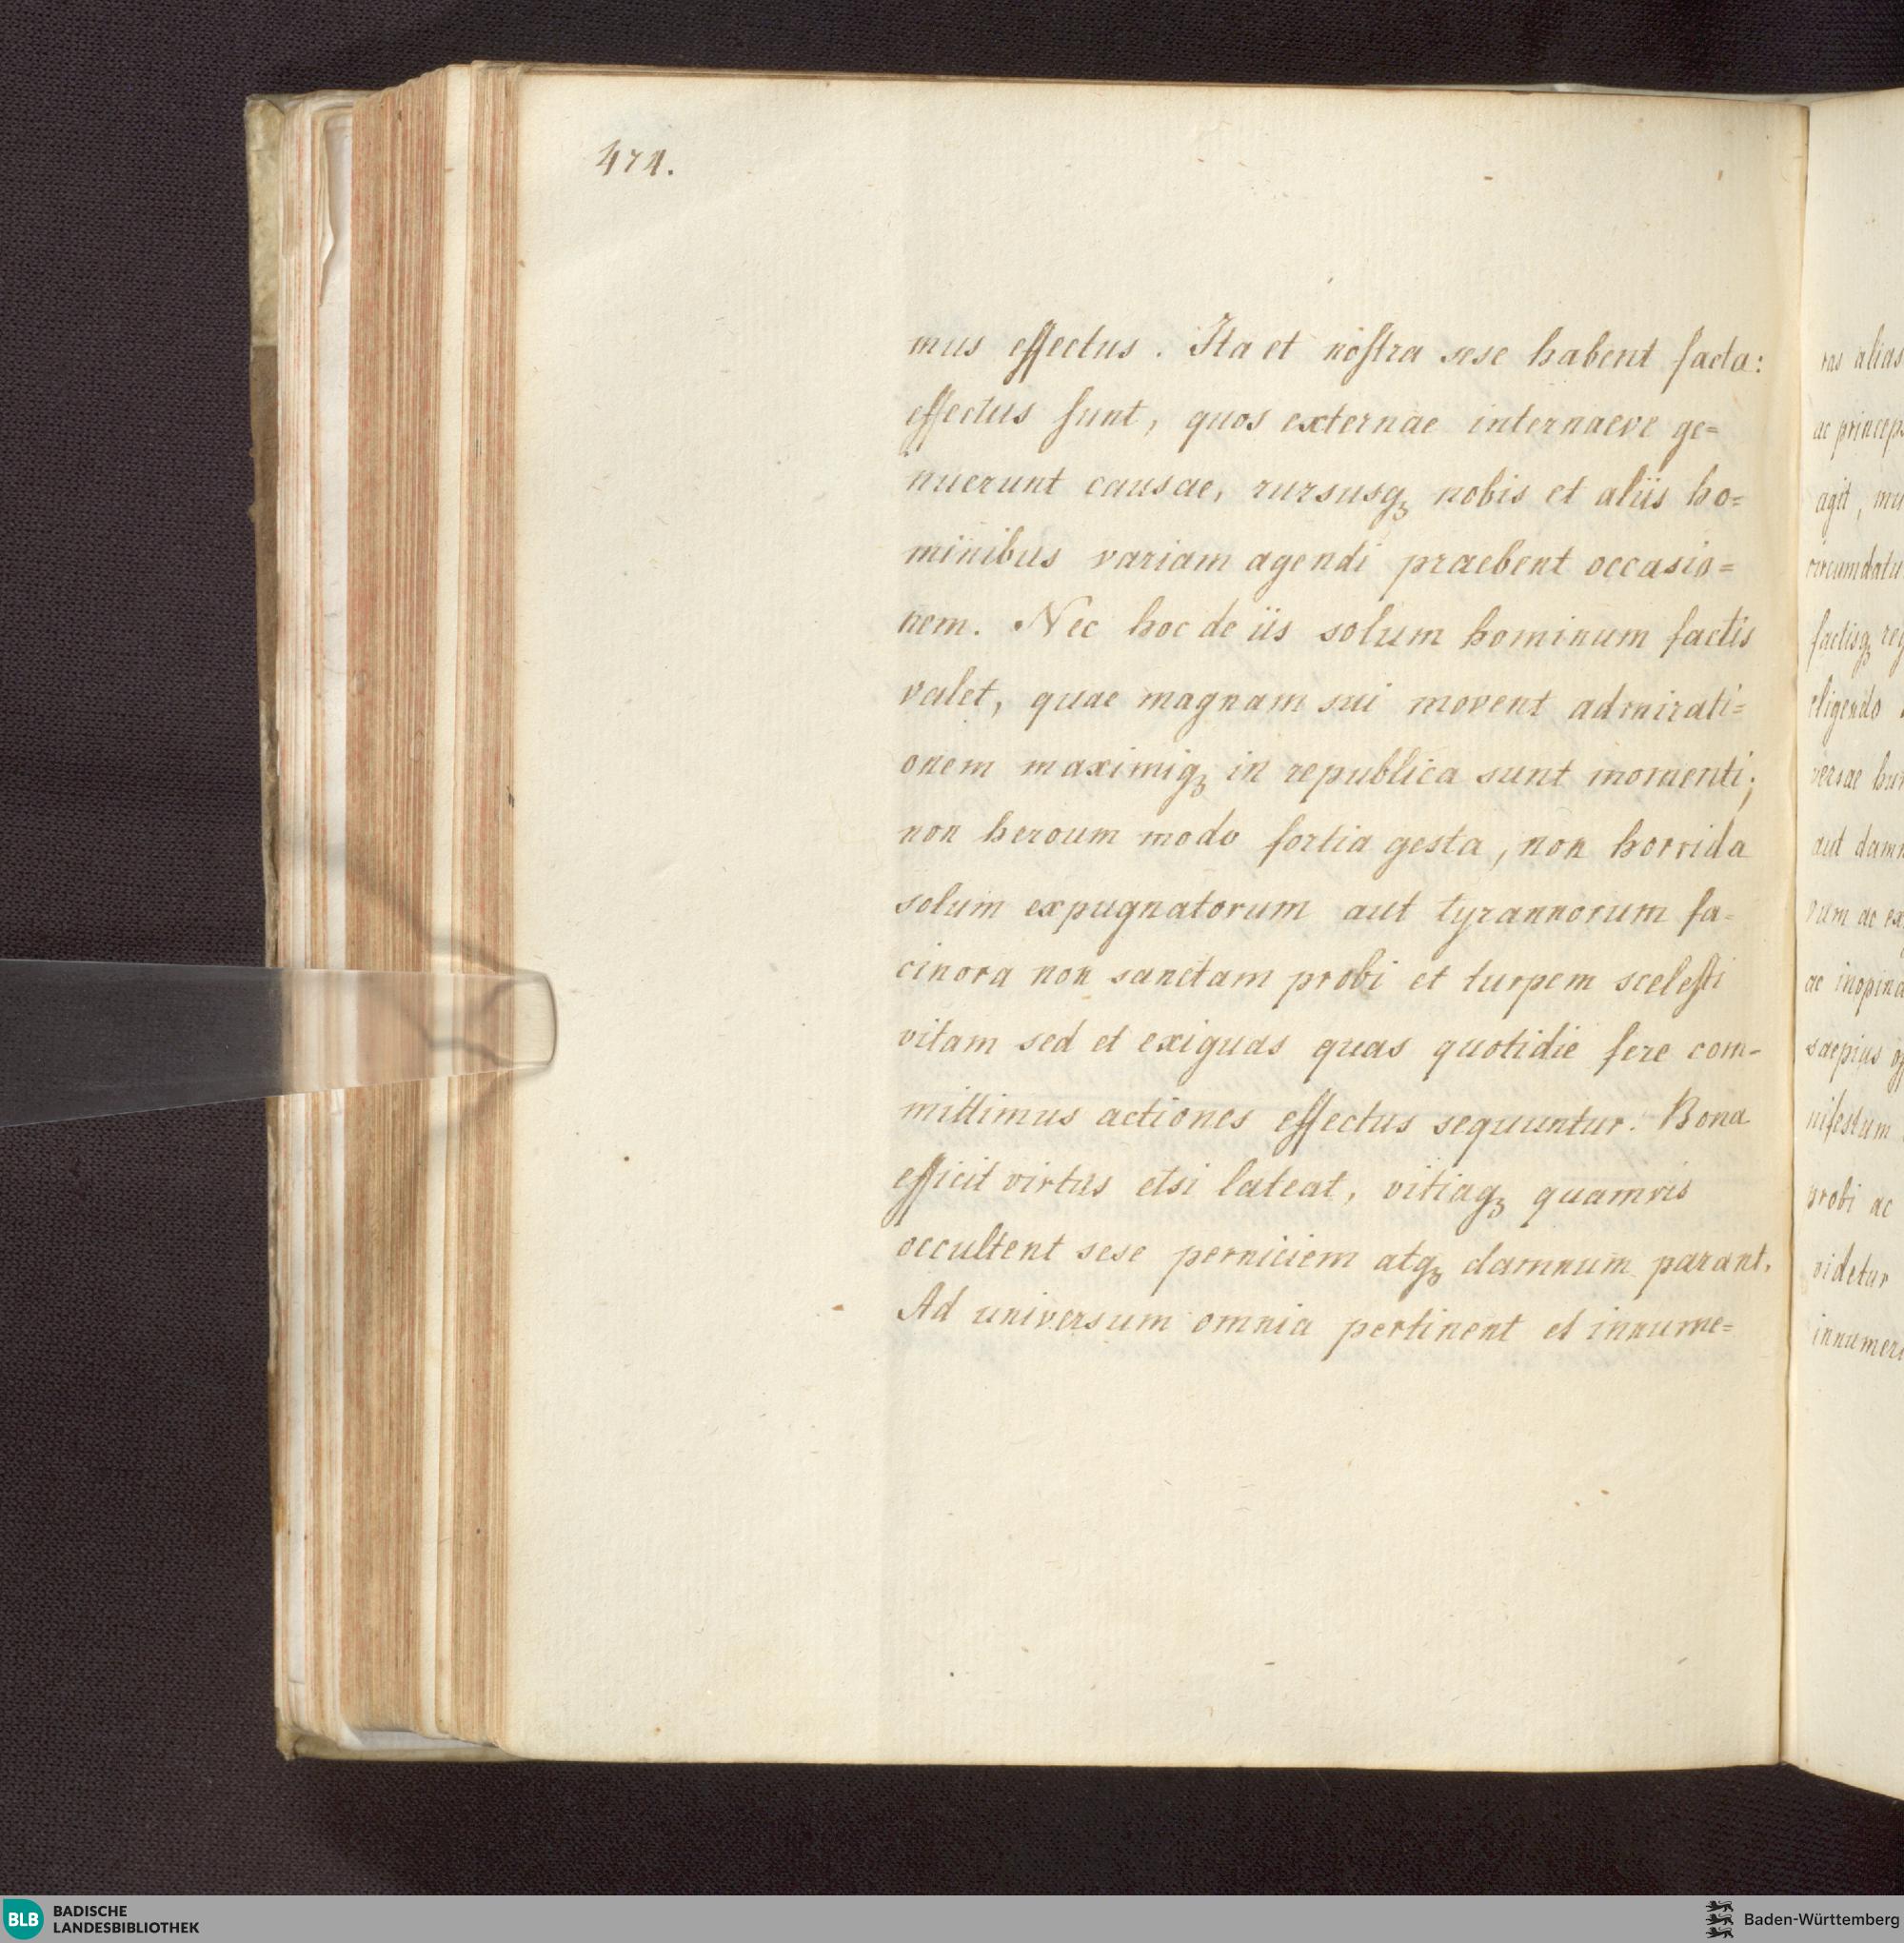 474.
mus effectus. Ita et nostra sese habent facta:
effectus sunt, quos externae internaeve ge=
nuerunt causae, rursusqꝫ nobis et aliis ho=
minibus variam agendi praebent occasio=
nem. Nec hoc de iis solum hominum factis
valet, quae magnam sui movent admirati=
onem maximiqꝫ in republica sunt momenti;
non heroum modo fortia gesta, non horrida
solum expugnatorum aut tyrannorum fa=
cinora non sanctam probi et turpem scelesti
vitam sed et exiguas quas quotidie fere com-
mittimus actiones effectus sequuntur. Bona
efficit virtus etsi lateat, vitiaqꝫ quamvis
occultent sese perniciem atqꝫ damnum parant.
Ad universum omnia pertinent et innume=
ras alias
ac princeps
agit, mu
circumdatu
factisqꝫ reg
eligendo
versae hu
aut damn
rum ac ex
ac inopina
saepius
nifestum
probi ac
videtur
innumer
BLB BADISCHE
LANDESBIBLIOTHEK
Baden-Württemberg